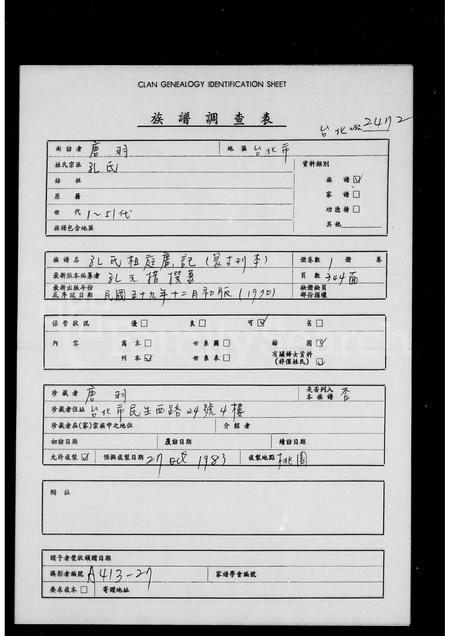 CLAN GENEALOGY IDENTIFICATION SHEET
族譜調查表
台北 2472
面訪者 唐羽 地區 台北市
姓氏宗派 孔氏 資料類別
始祖 族譜 ☑
原籍 家譜 □
世代 1~51代 功德榜 □
族譜包含地區 其他
族譜名 孔氏祖庭廣記(蒙古刊本) 冊卷數 1 冊 卷
最新版本編纂者 孔元措撰 頁數 344面
最新出版年份及序跋日期 民國五十九年十二月初版 (1970) 缺冊缺頁部份損壞
保管狀況 優 □ 良 □ 可 ☑ 劣 □
內容 寫本 □ 世系圖 □ 繪圖 ☑
刊本 ☑ 世系表 □ 有關婦女資料(非僅姓氏) ☑
珍藏者 唐羽 是否列入本族譜 否
珍藏者住址 台北市民生西路24號4樓
珍藏者在(家)宗族中之地位 介紹者
初訪日期 覆訪日期 續訪日期
允許複製 ☑ 預擬複製日期 27 oct 1983 複製地點 桃園
附註
贈予者獎狀頒贈日期
攝影者編號 A413-27 家譜學會編號
要求複本 □ 寄贈地址
FamilySearch